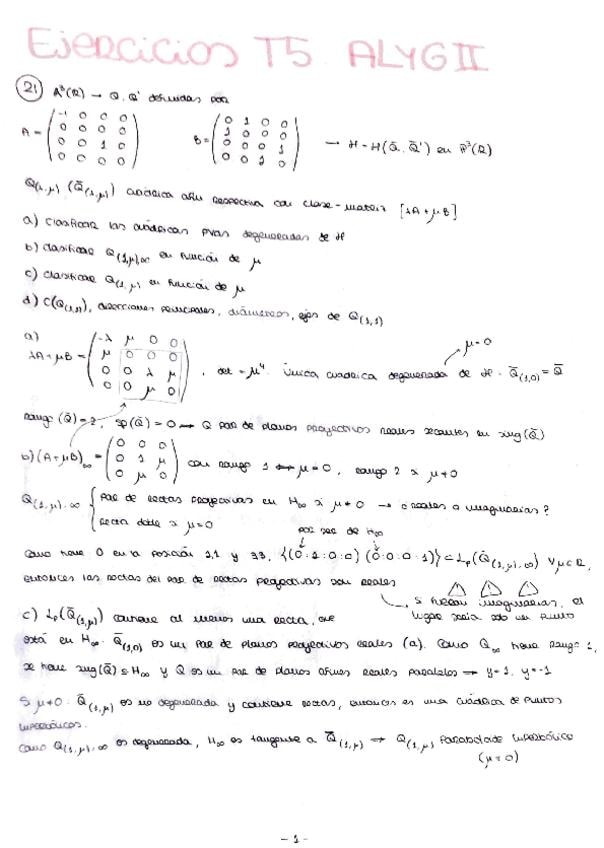 Ejercicios T5 ALYGII
21 A³(R) → Q, Q' definidas por
A = ( -1 0 0 0
0 0 0 0
0 0 1 0
0 0 0 0 )
B = ( 0 1 0 0
1 0 0 0
0 0 0 1
0 0 1 0 ) → H = H(Q̄, Q̄') en P³(R)
Q(λ,μ) (Q̄(λ,μ)) cuádrica afín respectiva con clase-matriz [λA + μB]
a) Clasificar las cuádricas proyas degeneradas de H
b) Clasificar Q(1,μ),∞ en función de μ
c) Clasificar Q(1,μ) en función de μ
d) C(Q(1,1)), direcciones principales, diámetros, ejes de Q(1,1)
a) μ=0
λA + μB = ( -λ μ 0 0
μ 0 0 0
0 0 λ μ
0 0 μ 0 ) , det = μ⁴. Única cuádrica degenerada de H: Q̄(1,0) = Q̄
rango (Q̄) = 2, sp(Q̄) = 0 → Q par de planos proyectivos reales secantes en sing(Q̄)
b) (A + μB)∞ = ( 0 0 0
0 1 μ
0 μ 0 ) con rango 1 ↔ μ = 0, rango 2 si μ ≠ 0
Q(1,μ),∞ { Par de rectas proyectivas en H∞ si μ ≠ 0 → ¿reales o imaginarias?
Recta doble si μ = 0
por ser de H∞
Como tiene 0 en la posición 1,1 y 3,3, {(0:1:0:0) (0:0:0:1)} ⊂ Lp(Q̄(1,μ),∞) ∀μ∈R,
entonces las rectas del par de rectas proyectivas son reales
Si fueran imaginarias, el
lugar sería solo un punto
c) Lp(Q̄(1,μ)) contiene al menos una recta, que
está en H∞. Q̄(1,0) es un par de planos proyectivos reales (a). Como Q∞ tiene rango 1,
se tiene sing(Q̄) ⊆ H∞ y Q es un par de planos afines reales paralelos → y=1, y=-1
Si μ≠0: Q̄(1,μ) es no degenerada y contiene rectas, entonces es una cuádrica de puntos
hiperbólicos.
Como Q(1,μ),∞ es degenerada, H∞ es tangente a Q̄(1,μ) → Q(1,μ) Paraboloide hiperbólico
(μ≠0)
- 1 -